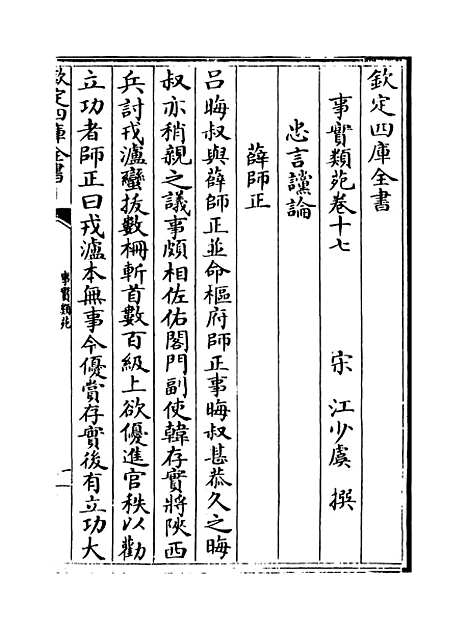 欽定四庫全書
事實類苑卷十七
宋 江少虞 撰
忠言讜論
薛師正
吕晦叔與薛師正並命樞府師正事晦叔甚恭久之晦
叔亦稍親之議事頗相佐佑閤門副使韓存實將陜西
兵討戎瀘蠻拔數柵斬首數百級上欲優進官秩以勸
立功者師正曰戎瀘本無事今優賞存實後有立功大
欽定四庫全書
事實類苑
一